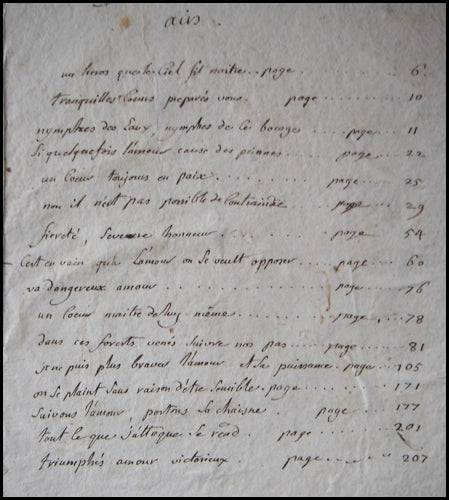 airs.
un heros que le Ciel fit naitre. page 6
tranquilles Coeurs preparés vous. page 10
nymphes des Eaux, nymphes de Ces bocages page 11
Si quelquefois l'amour cause des peinnes page 22
un Coeur toujours en paix page 25
non il n'est pas possible de Contraindre page 29
fiereté, Severe honneur page 54
C'est en vain qu'a L'amour on Se veult opposer page 60
va dangereux amour page 76
un Coeur maitre de luy même page 78
dans ces forests venés Suivre nos pas page 81
je ne puis plus braver l'amour et Sa puissance page 105
on Se plaint Sans raison d'etre Sensible page 171
Suivons l'amour, portons Sa chaisne page 177
tout le que j'attaque Se rend. page 201
triumphés amour victorieux. page 207